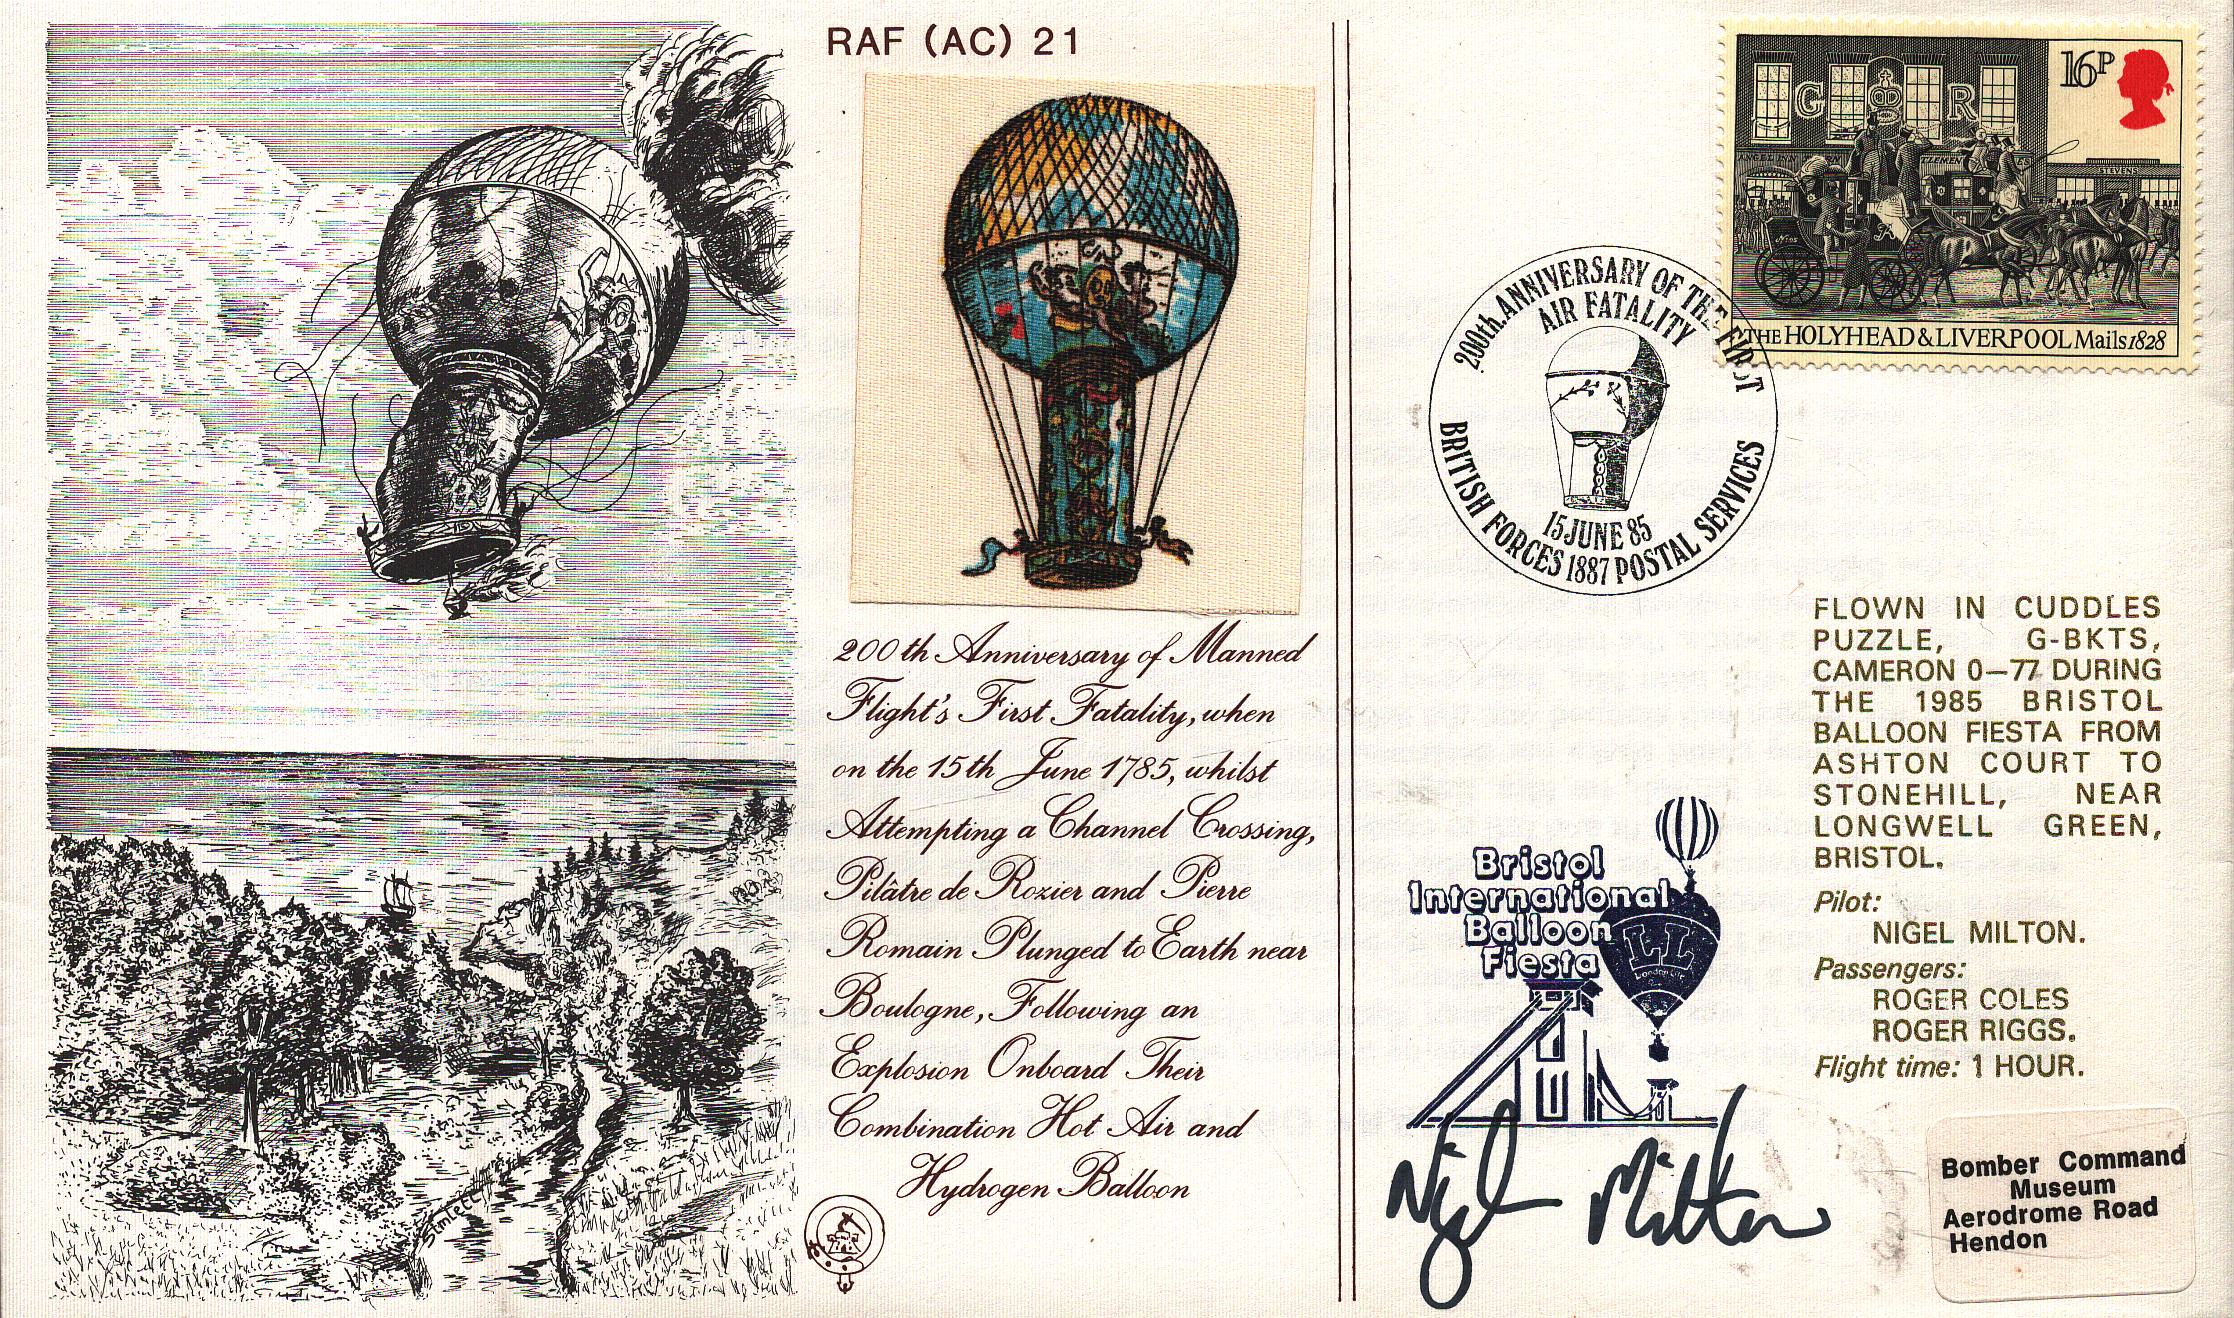 RAF (AC) 21
200th Anniversary of Manned
Flight's First Fatality, when
on the 15th June 1785, whilst
Attempting a Channel Crossing,
Pilâtre de Rozier and Pierre
Romain Plunged to Earth near
Boulogne, Following an
Explosion Onboard Their
Combination Hot Air and
Hydrogen Balloon
Stimlett
16P
G R
ANGEL INN
STEVENS
THE HOLYHEAD & LIVERPOOL Mails 1828
200th. ANNIVERSARY OF THE FIRST
AIR FATALITY
15 JUNE 85
BRITISH FORCES 1887 POSTAL SERVICES
FLOWN IN CUDDLES
PUZZLE, G-BKTS,
CAMERON 0–77 DURING
THE 1985 BRISTOL
BALLOON FIESTA FROM
ASHTON COURT TO
STONEHILL, NEAR
LONGWELL GREEN,
BRISTOL.
Pilot:
NIGEL MILTON.
Passengers:
ROGER COLES
ROGER RIGGS.
Flight time: 1 HOUR.
Bristol
International
Balloon
Fiesta
LL
London Life
Nigel Milton
Bomber Command
Museum
Aerodrome Road
Hendon